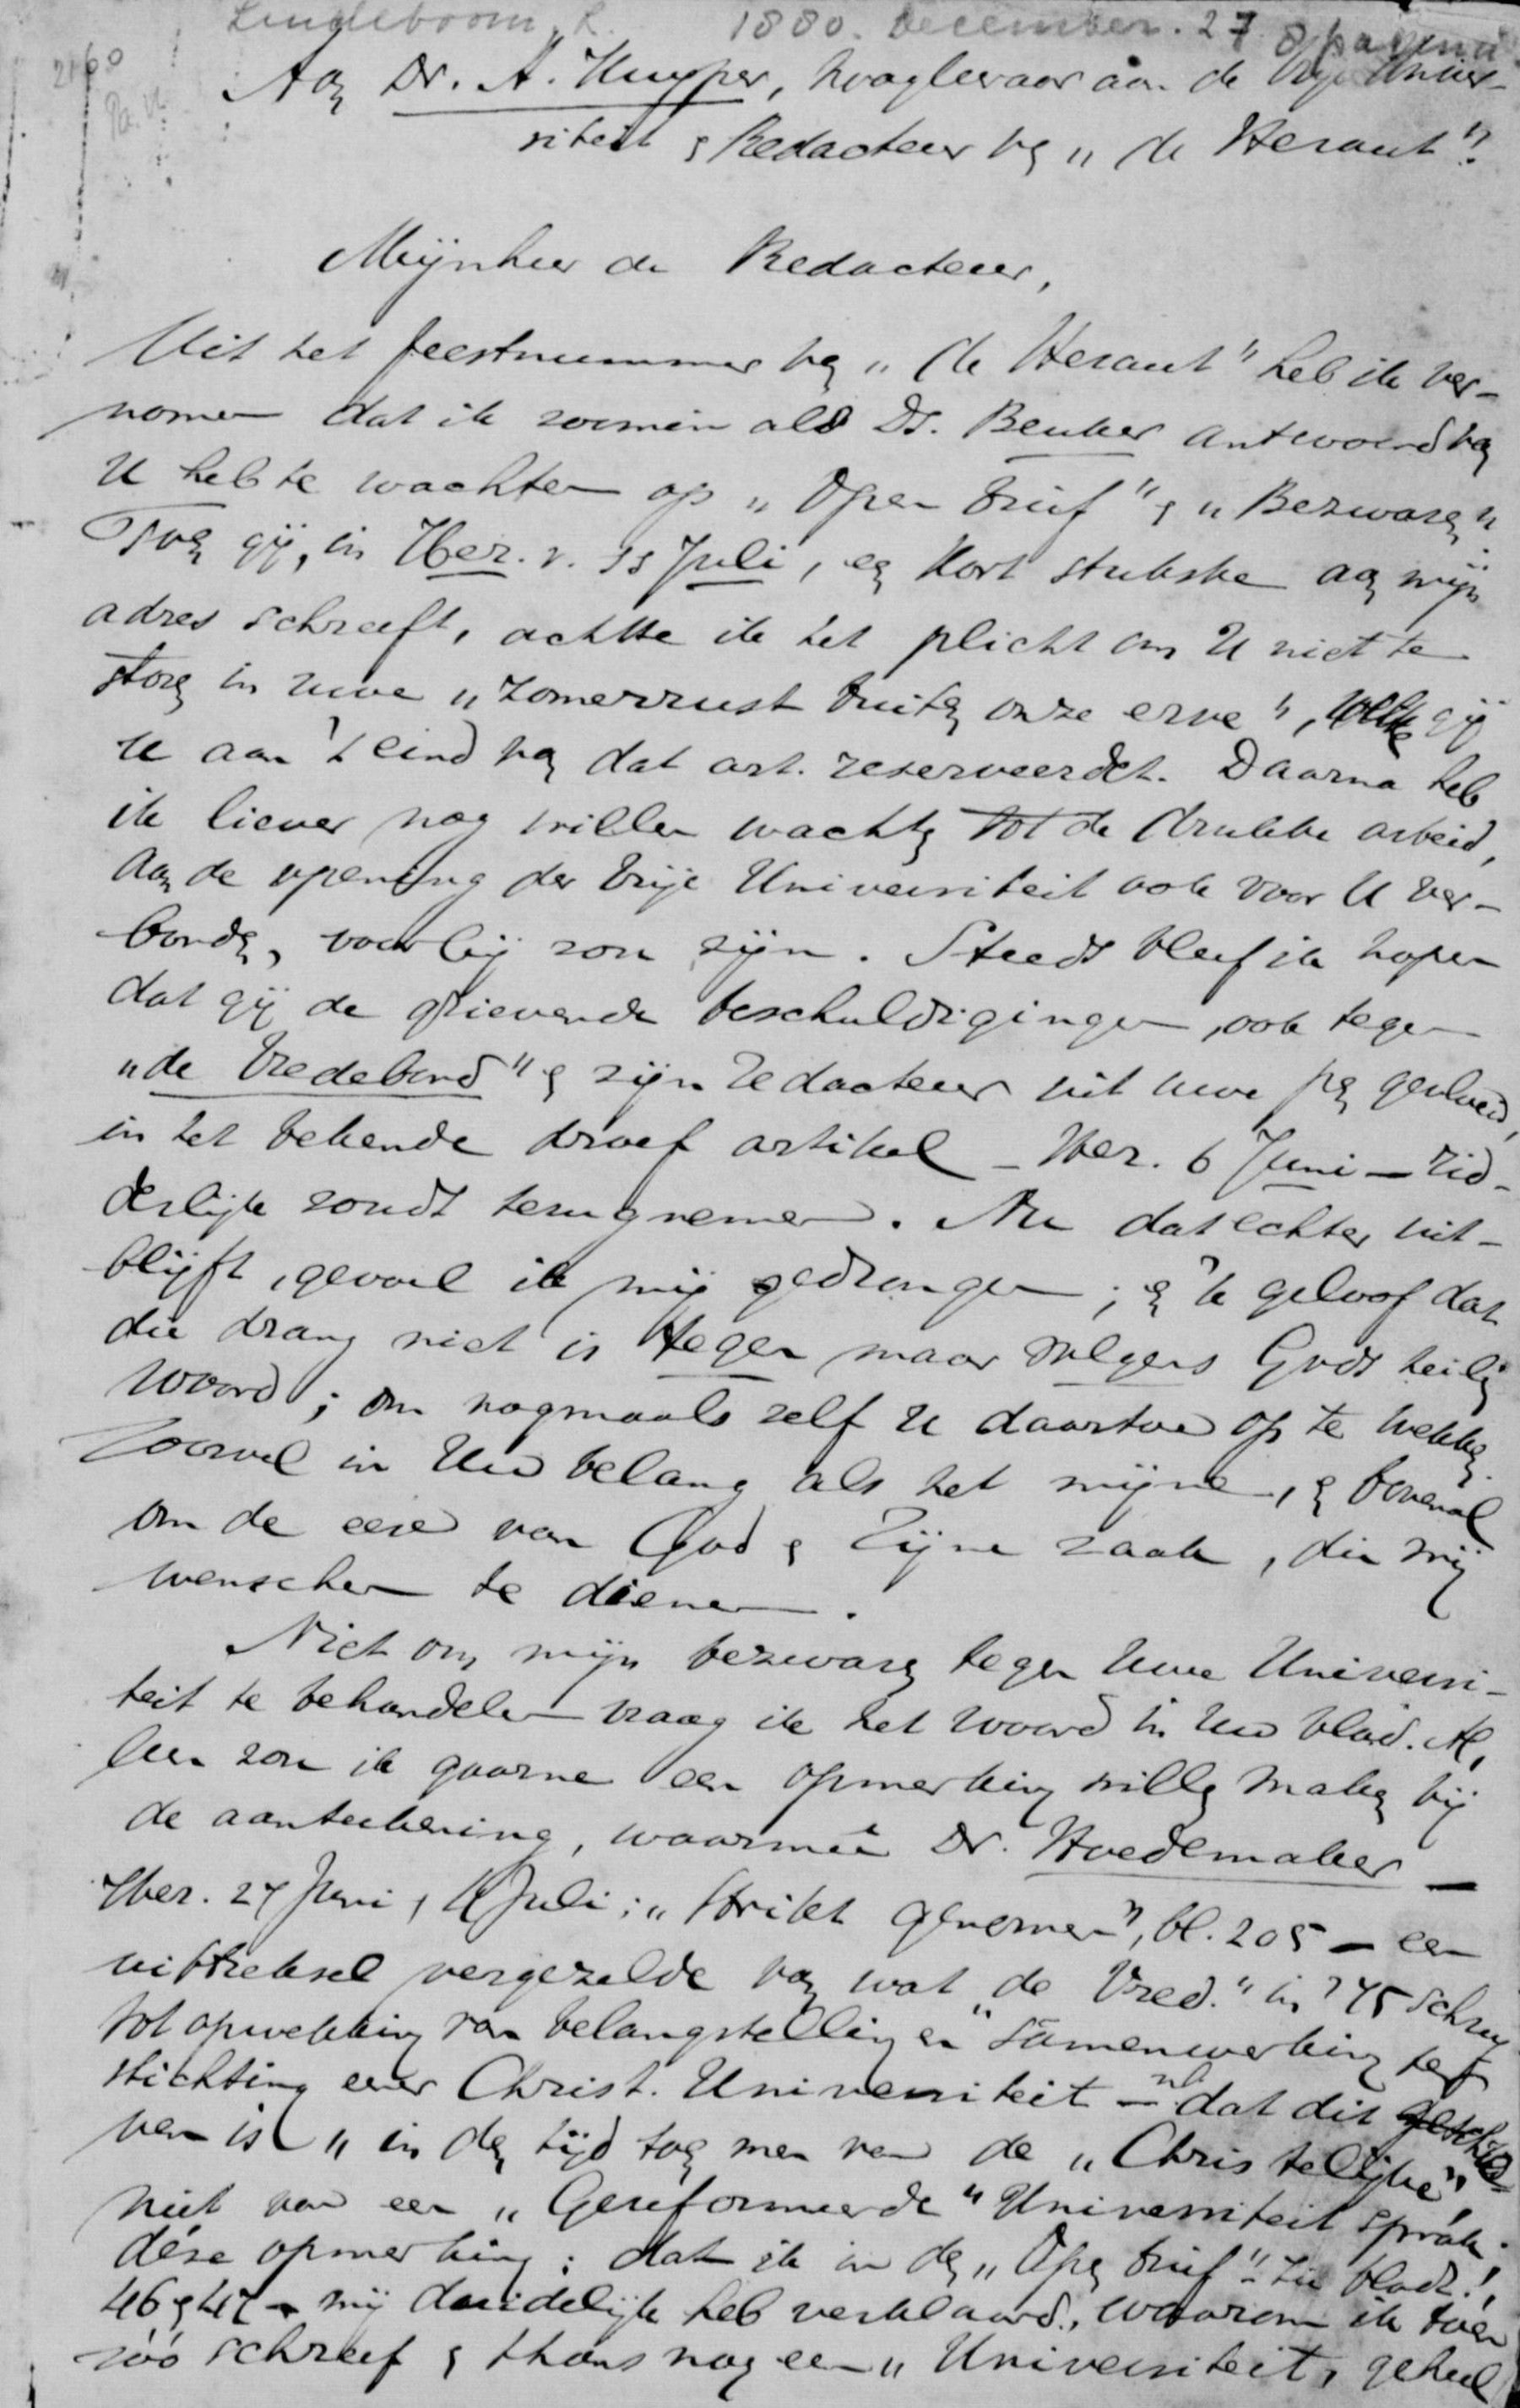 Lindeboom, L. 1880. December. 27 8 pagina's
2160
Aan Dr. A. Kuyper, hoogleeraar aan de Vrije Univer-
siteit & Redacteur van „de Heraut".
Mijnheer de Redacteur,
Uit het feestnummer van „de Heraut" heb ik ver-
nomen dat ik zoomin als Ds. Beuker antwoord van
U heb te wachten op „Open Brief" & „Bezwaren".
Toen gij, in Her. v. 11 Juli, een kort stukske aan mijn
adres schreeft, achtte ik het plicht om U niet te
storen in uwe „zomerrust buiten onze erve", welke gij
U aan 't eind van dat art. reserveerdet. Daarna heb
ik liever nog willen wachten tot de drukke arbeid,
aan de opening der Vrije Universiteit ook voor U ver-
bonden, voorbij zou zijn. Steeds bleef ik hopen
dat gij de grievende beschuldigingen, ook tegen
„de Vredebond" & zijn Redacteur uit uwe pen gevloeid,
in het bekende droef artikel – Her. 6 Juni – rid-
derlijk zoudt terugnemen. Nu dat echter uit-
blijft, gevoel ik mij gedrongen; & 'k geloof dat
die drang niet is tegen maar volgens Gods heilig
Woord; om nogmaals zelf U daartoe op te wekken.
Zoowel in Uw belang als het mijne, & bovenal
om de eere van God & Zijne zaak, die wij
wenschen te dienen.
Niet om mijn bezwaren tegen Uwe Universi-
teit te behandelen vraag ik het woord in Uw blad. Al-
leen zou ik gaarne een opmerking willen maken bij
de aanteekening, waarmeê Dr. Hoedemaker –
Her. 27 Juni, 4 Juli; „Strikt genomen", bl. 205 – een
uittreksel vergezelde van wat „de Vred." in '75 schreef
tot opwekking van belangstelling en samenwerking ter
stichting eener Christ. Universiteit – nl. dat dit geschre-
ven is „in den tijd toen men van de „Christelijke"
niet van een „Gereformeerde" Universiteit sprak."
déze opmerking: dat ik in den „Open Brief" – zie bladz.
46 & 47 – mij duidelijk heb verklaard, waarom ik toen
zóó schreef & thans nog een „Universiteit, geheel